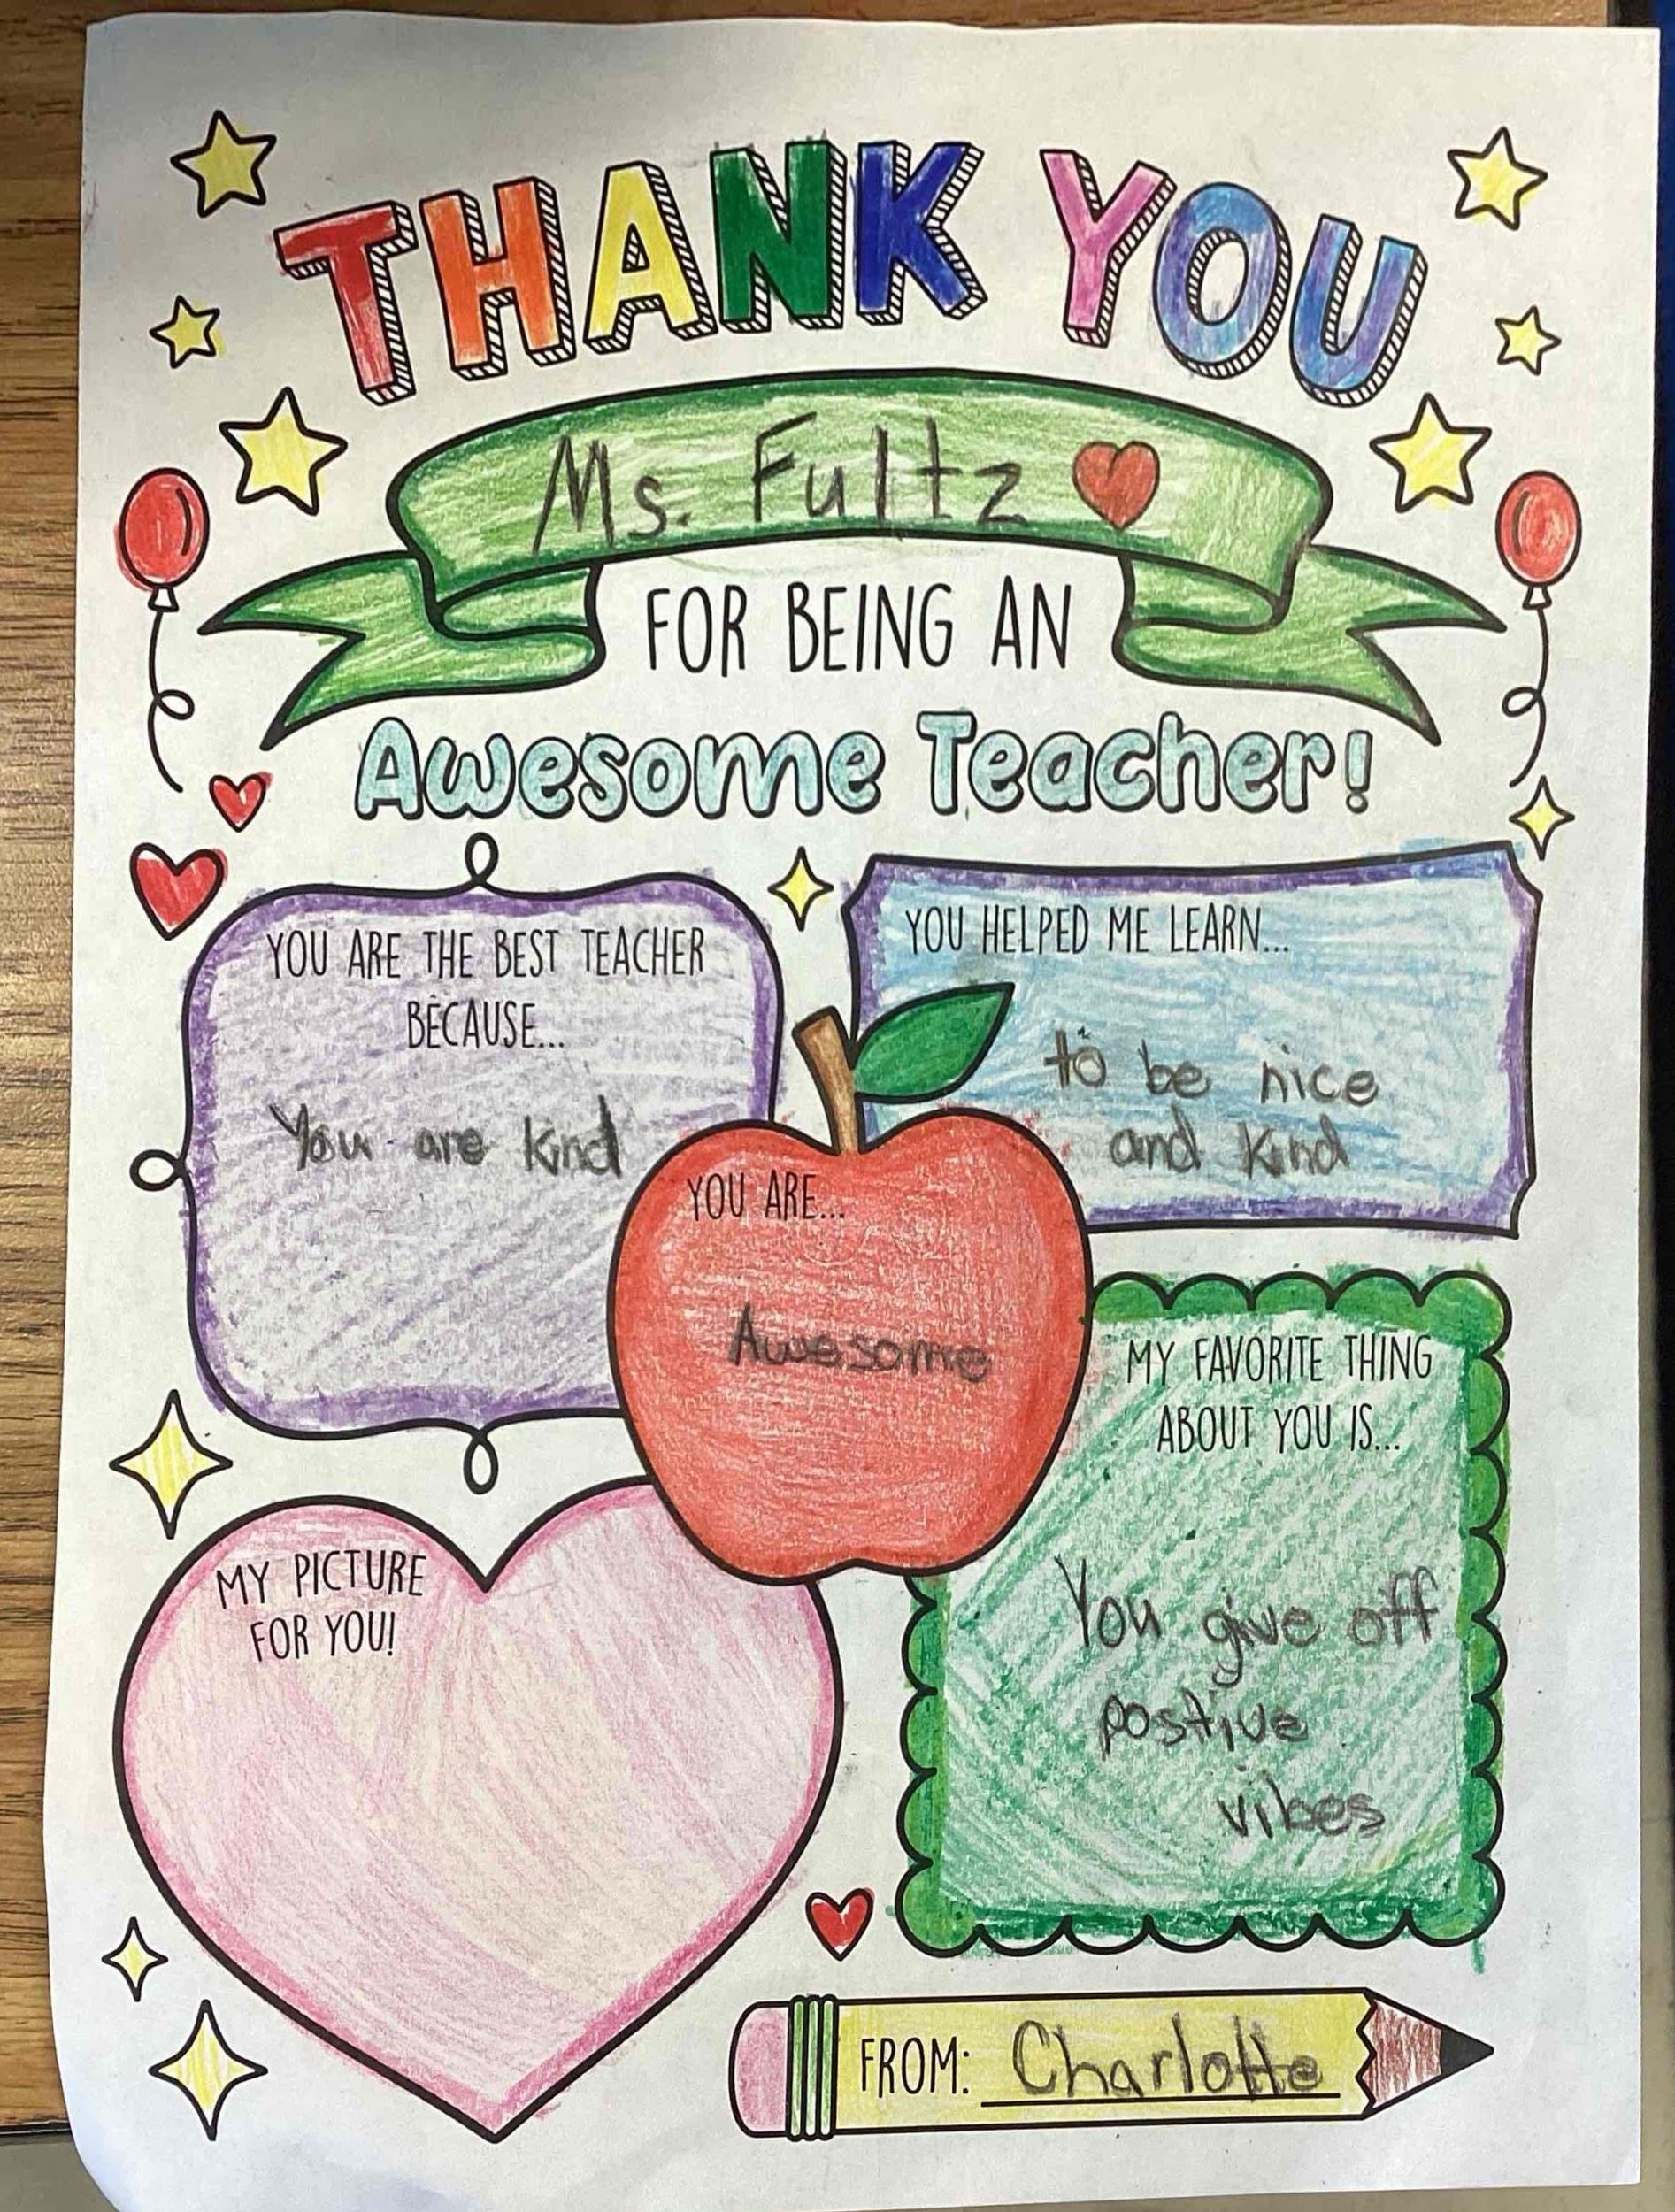 THANK YOU
Ms. Fultz
FOR BEING AN
Awesome Teacher!
YOU ARE THE BEST TEACHER
BECAUSE...
You are kind
YOU HELPED ME LEARN...
to be nice
and kind
YOU ARE...
Awesome
MY FAVORITE THING
ABOUT YOU IS...
You give off
postive
vibes
MY PICTURE
FOR YOU!
FROM: Charlotte